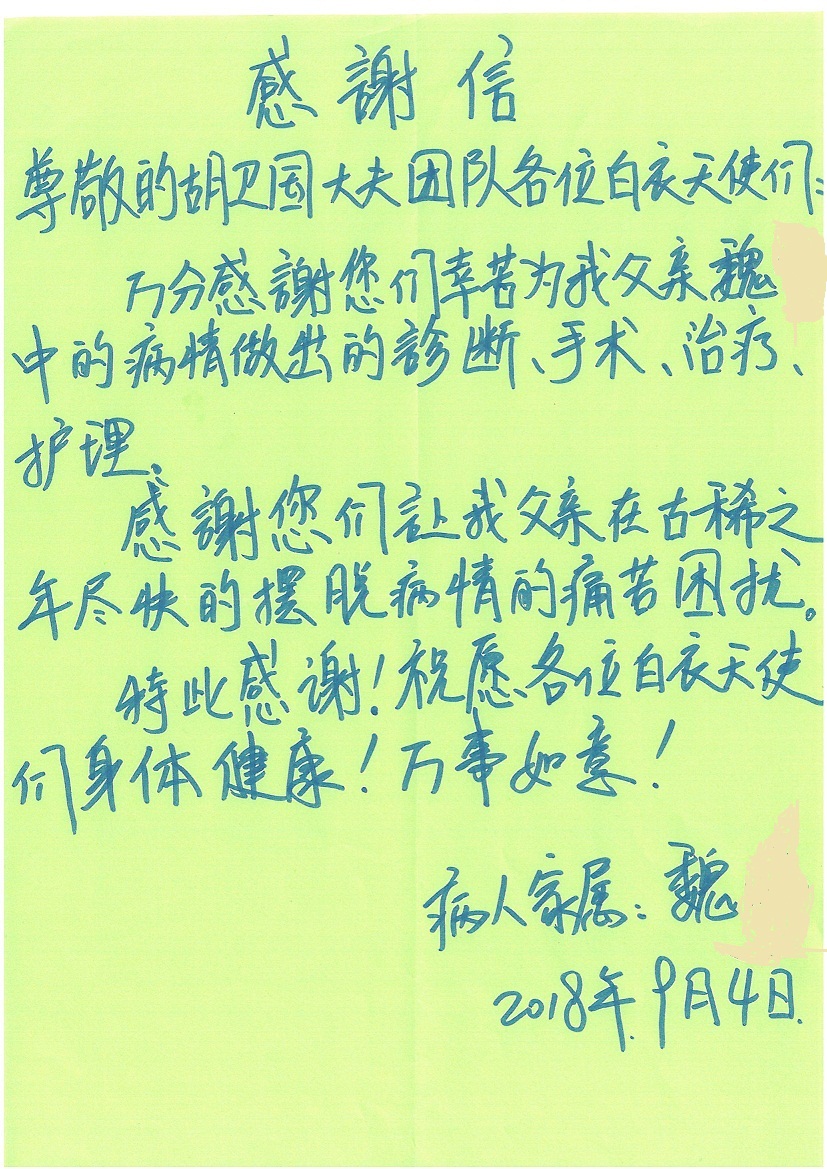 感謝信
尊敬的胡卫国大夫团队各位白衣天使们:
万分感謝您们辛苦为我父亲魏
中的病情做出的診断、手术、治疗、
护理。
感謝您们让我父亲在古稀之
年尽快的摆脱病情的痛苦困扰。
特此感谢!祝愿各位白衣天使
们身体健康!万事如意!
病人家属:魏
2018年9月4日.